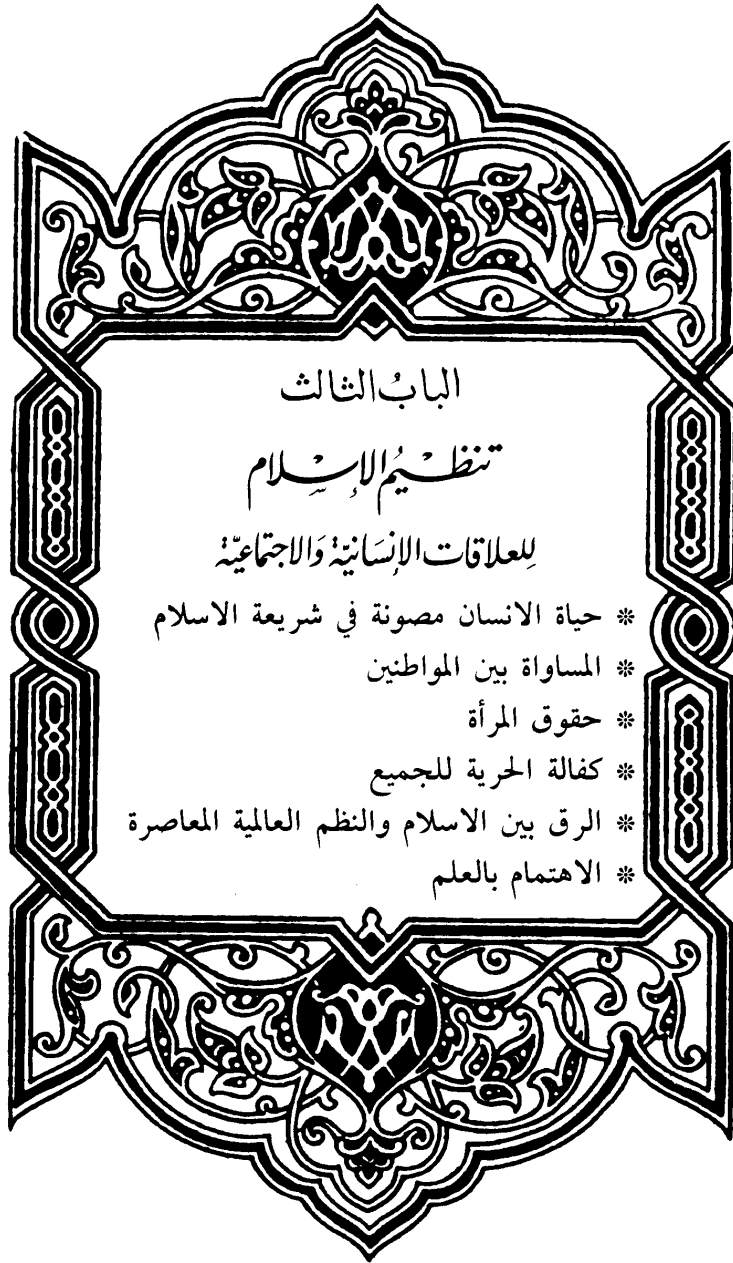 الباب الثالث
تنظيم الإسلام
للعلاقات الإنسانية والاجتماعية
❊ حياة الانسان مصونة في شريعة الاسلام
❊ المساواة بين المواطنين
❊ حقوق المرأة
❊ كفالة الحرية للجميع
❊ الرق بين الاسلام والنظم العالمية المعاصرة
❊ الاهتمام بالعلم